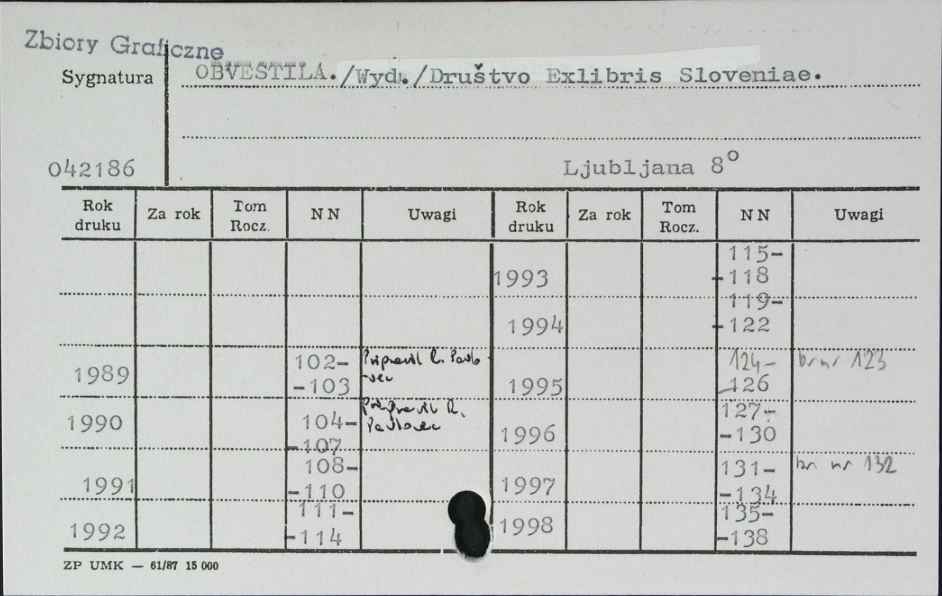 Zbiory Graficzne
Sygnatura
OBVESTILA./Wyd./Društvo Exlibris Sloveniae.
042186
Ljubljana 8°
Rok druku Za rok Tom Rocz. NN Uwagi Rok druku Za rok Tom Rocz. NN Uwagi
1993 115-
-118
1994 119-
-122
1989 102-
-103 Pripravil R. Pavlovec 1995 124-
-126 br nr 123
1990 104-
-107 Pripravil R.
Pavlovec 1996 127-
-130
1991 108-
-110 1997 131-
-134 br nr 132
1992 111-
-114 1998 135-
-138
ZP UMK — 61/87 15 000